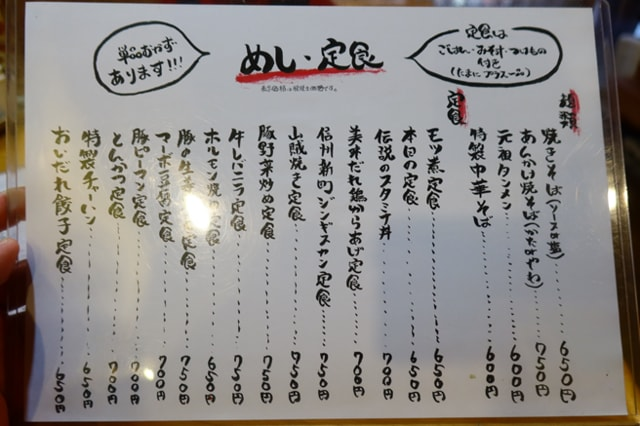 めし・定食
単品もむず
あります!!!
定食は
ごはん・おみそ汁・つけもの
付き
(たまにプラス一品)
麺類
焼きそば(ソースor塩)……650円
あんかけ焼そば(かたorやわ)……750円
元祖タンメン……600円
特製中華そば……600円
定食
モツ煮定食……650円
本日の定食……650円
伝説のスタミナ丼……700円
美味だれ鶏からあげ定食……700円
信州新町ジンギスカン定食……750円
山賊焼き定食……750円
豚野菜炒め定食……750円
牛レバニラ定食……750円
ホルモン焼き定食……650円
豚の生姜焼き定食……750円
マーボー豆腐定食……700円
豚ピーマン定食……700円
とんかつ定食……700円
特製チャーハン……650円
おいだれ餃子定食……650円